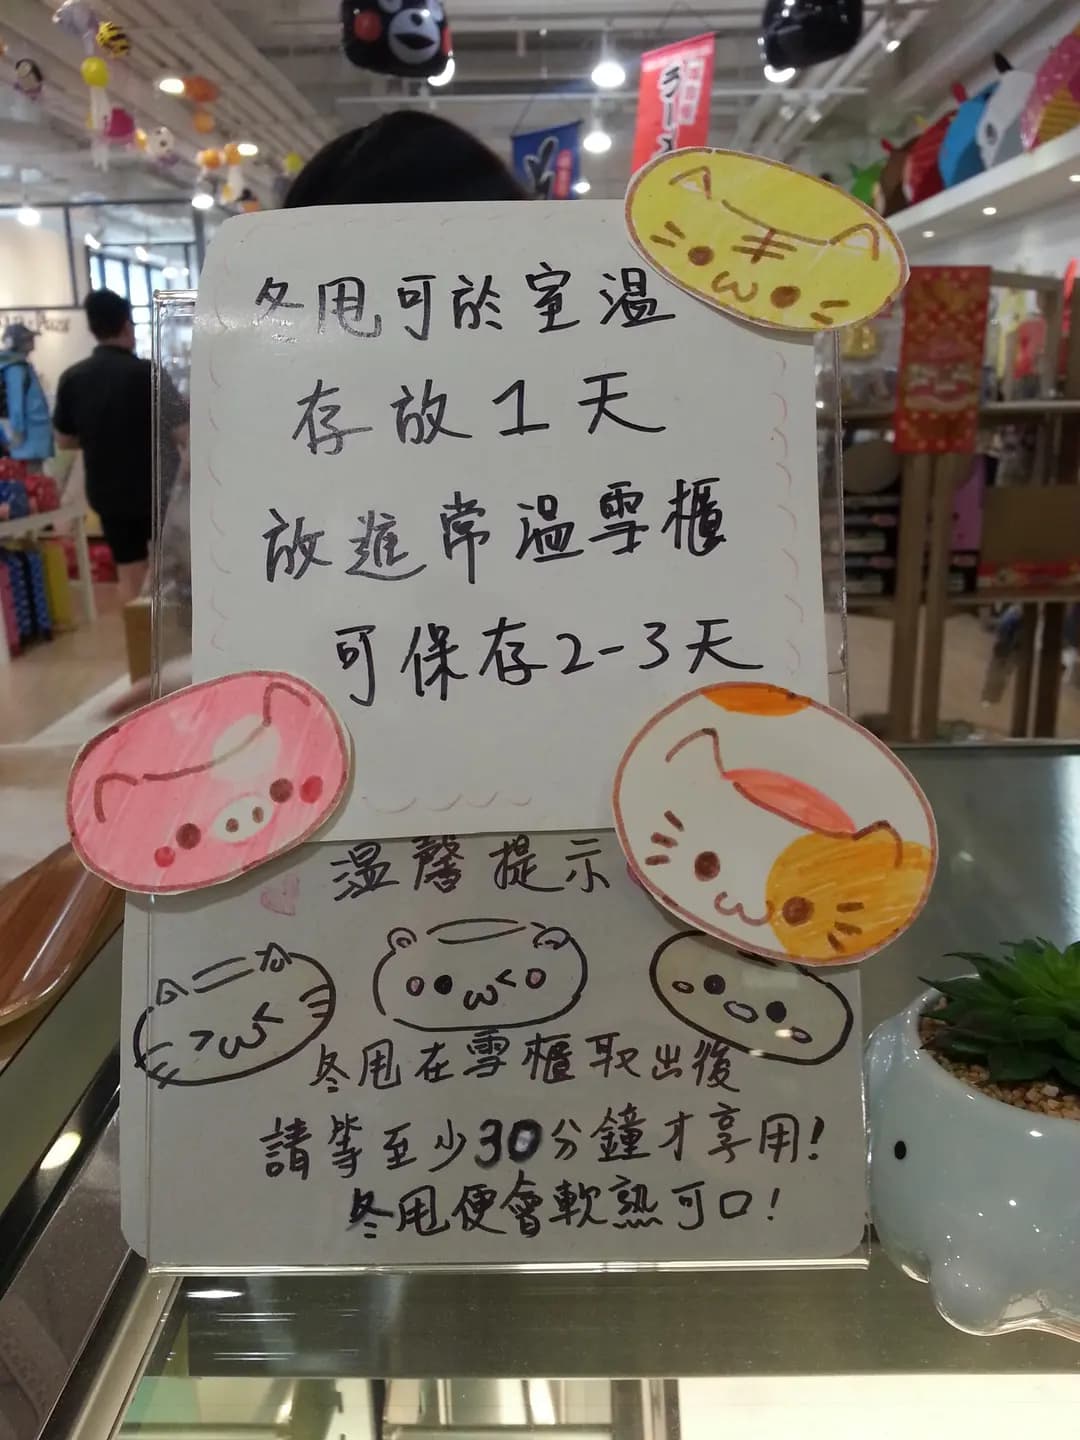 冬甩可於室温
存放1天
放進常温雪櫃
可保存2-3天
温馨提示
冬甩在雪櫃取出後
請等至少30分鐘才享用!
冬甩便會軟熟可口!